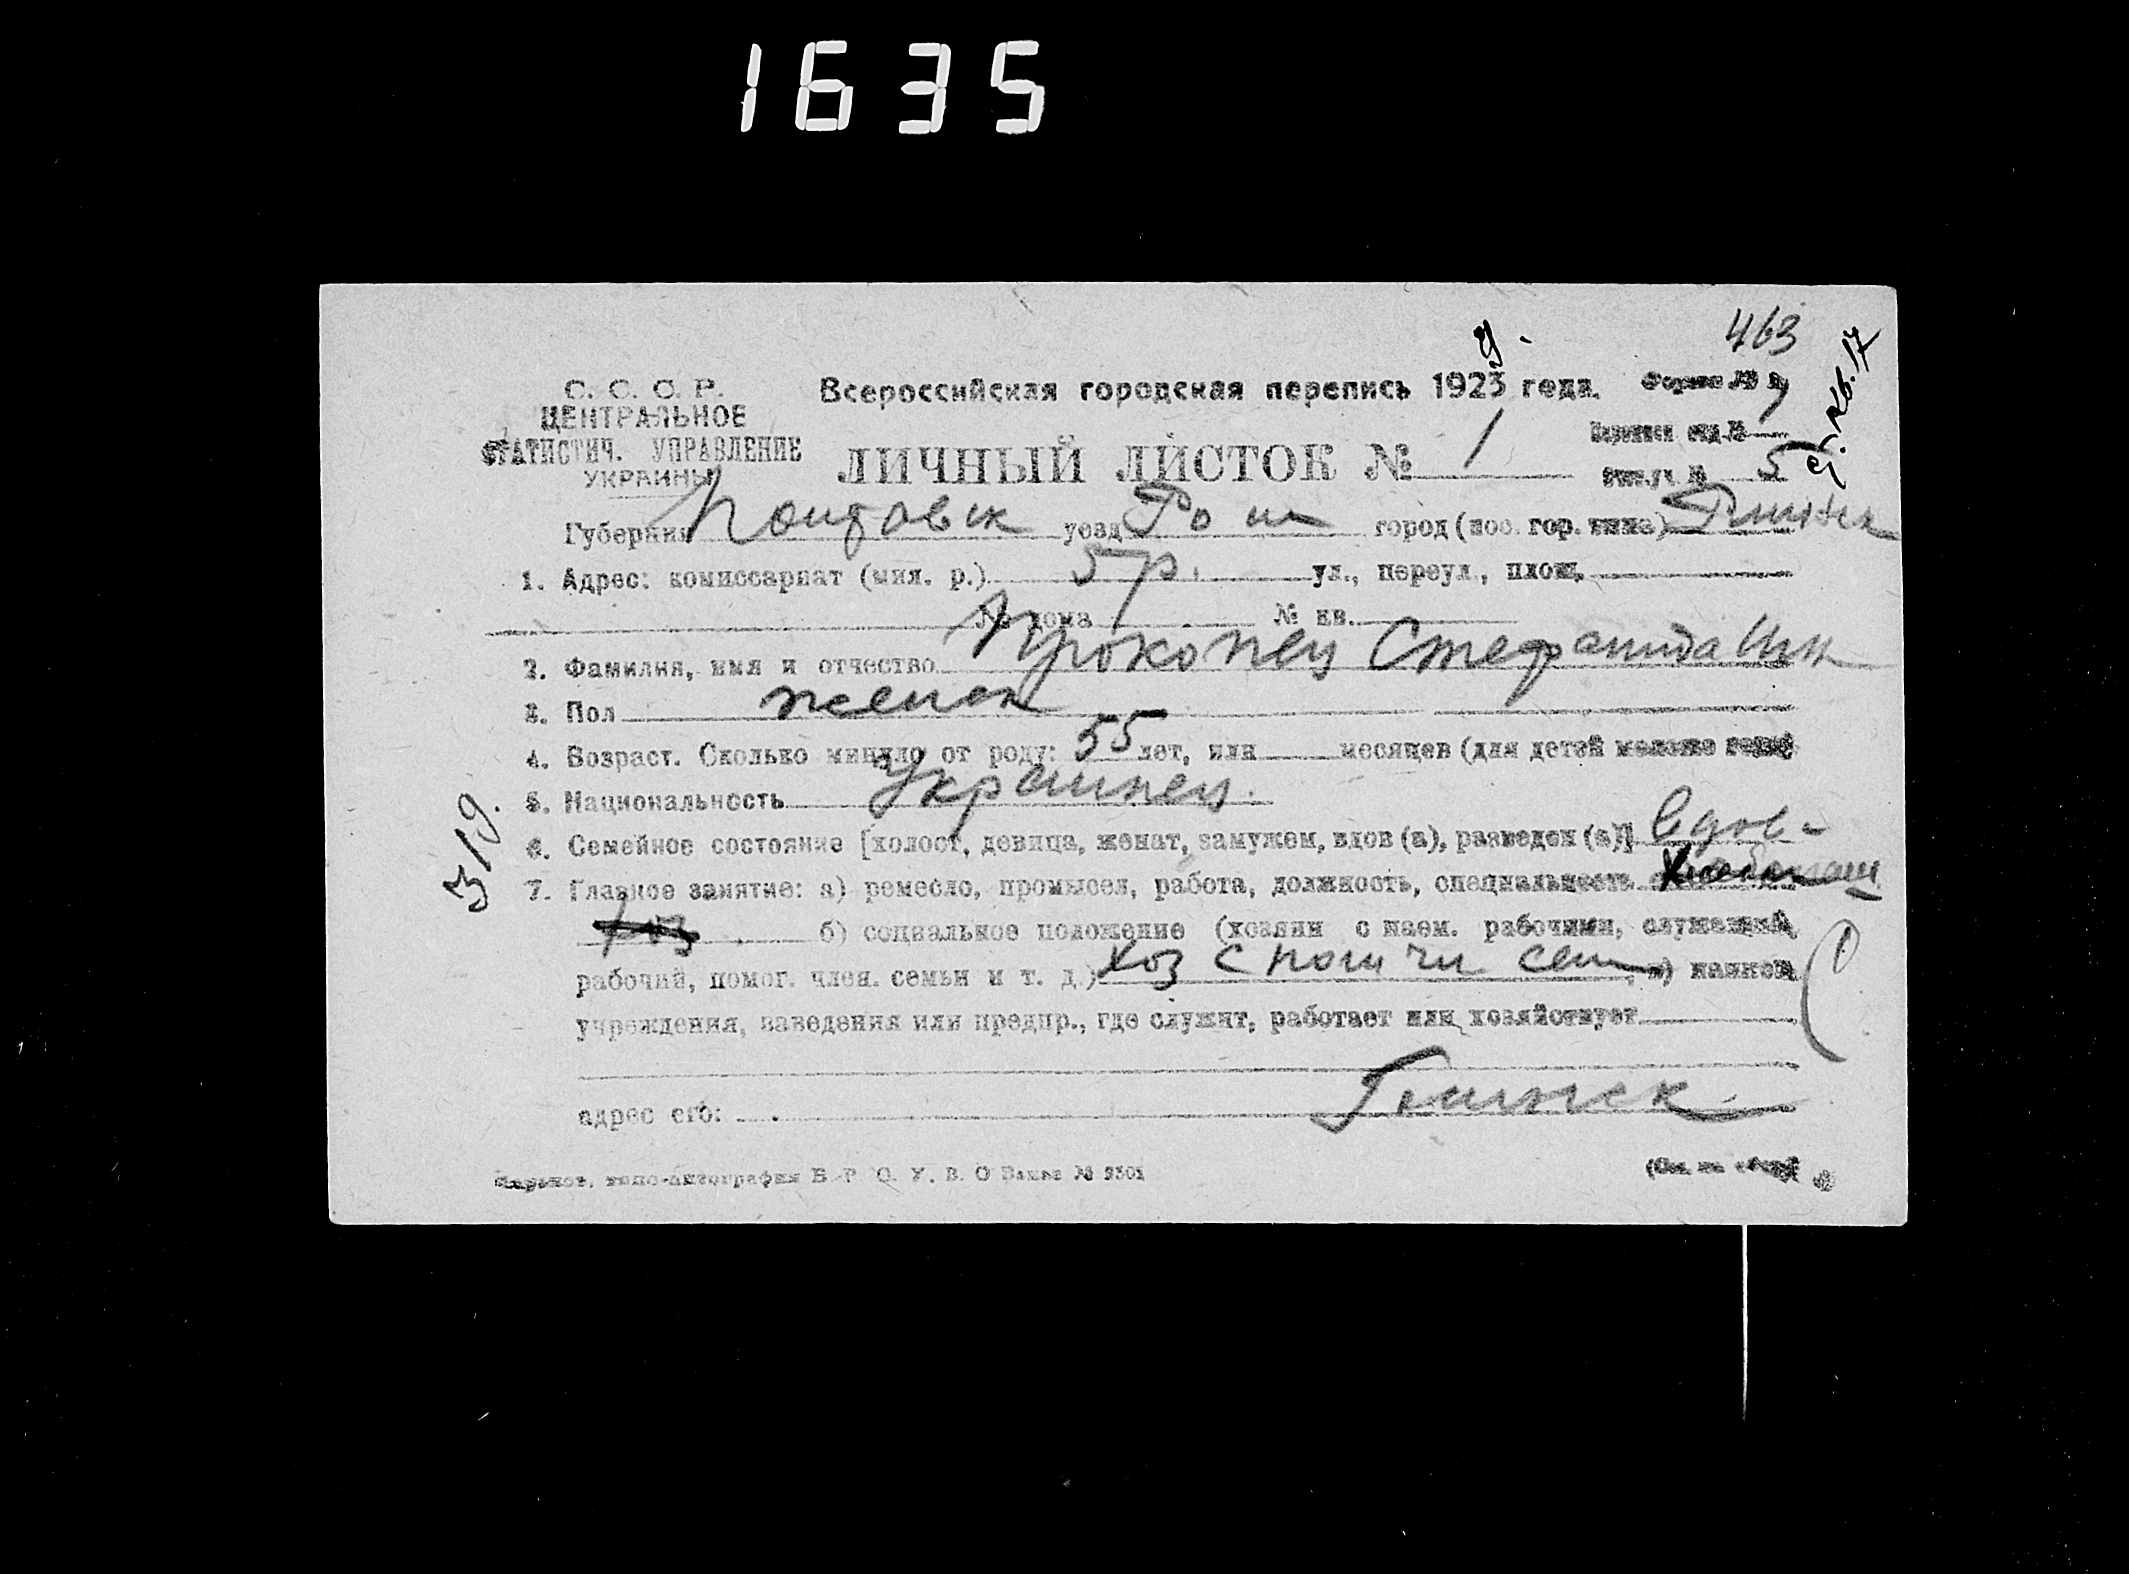 1635
463
С. С. С. Р.
ЦЕНТРАЛЬНОЕ
СТАТИСТИЧ. УПРАВЛЕНИЕ
УКРАИНЫ
Всероссийская городская перепись 1923 года.
Форма №
ЛИЧНЫЙ ЛИСТОК № 1
№ 5
Губерния Полтавск уезд Ром город (пос. гор. типа) Глинск
1. Адрес: комиссариат (мил. р.) 5 р. ул., переул., площ.
№ дома № кв.
2. Фамилия, имя и отчество Прокопец Стефанида
3. Пол женск
4. Возраст. Сколько минуло от роду: 55 лет, или месяцев (для детей моложе года)
5. Национальность Украинец.
6. Семейное состояние [холост, девица, женат, замужем, вдов (а), разведен (а)] Вдов-
7. Главное занятие: а) ремесло, промысел, работа, должность, специальность Хлебопаш
б) социальное положение (хозяин с наем. рабочими, служащий,
рабочий, помог. член. семьи и т. д.) Хоз с помг чл сем, в) назван.
учреждения, заведения или предпр., где служит, работает или хозяйствует
адрес его: Глинск
319.
№ 3301
(См. на обор.)